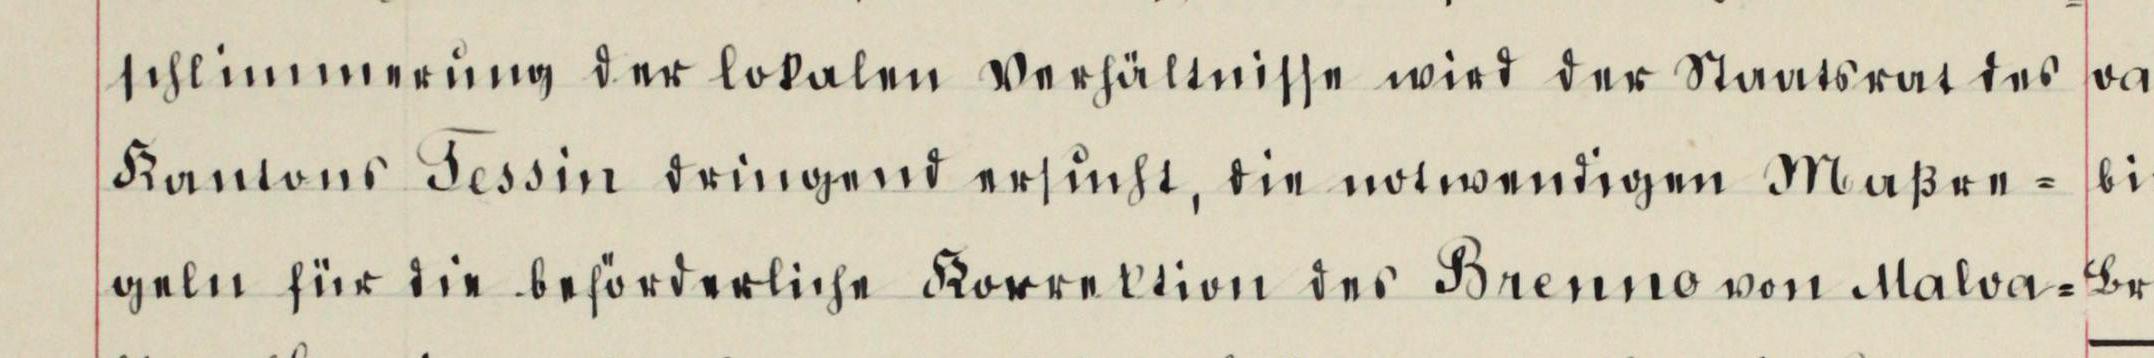 schlimmerung der lokalen Verhältnisse wird der Staatsrat des
Kantons Tessin dringend ersucht, die notwendigen Maßre=
geln für die beförderliche Korrektion des Brenno von Malva=